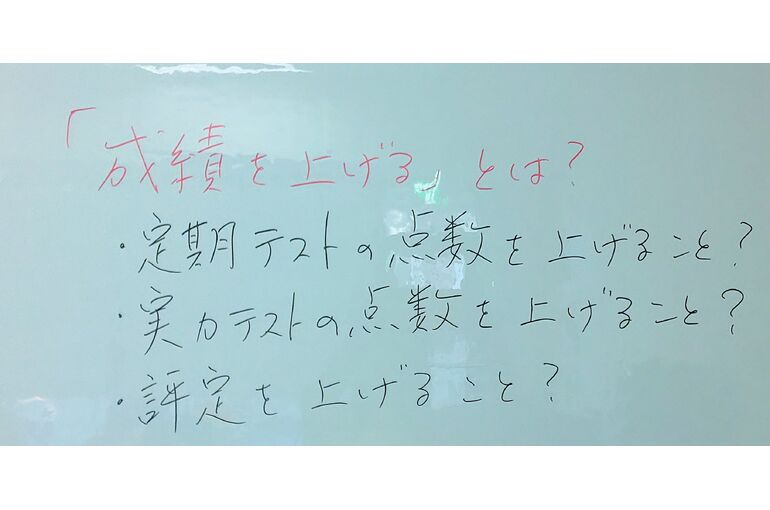 「成績を上げる」とは?
・定期テストの点数を上げること?
・実力テストの点数を上げること?
・評定を上げること?